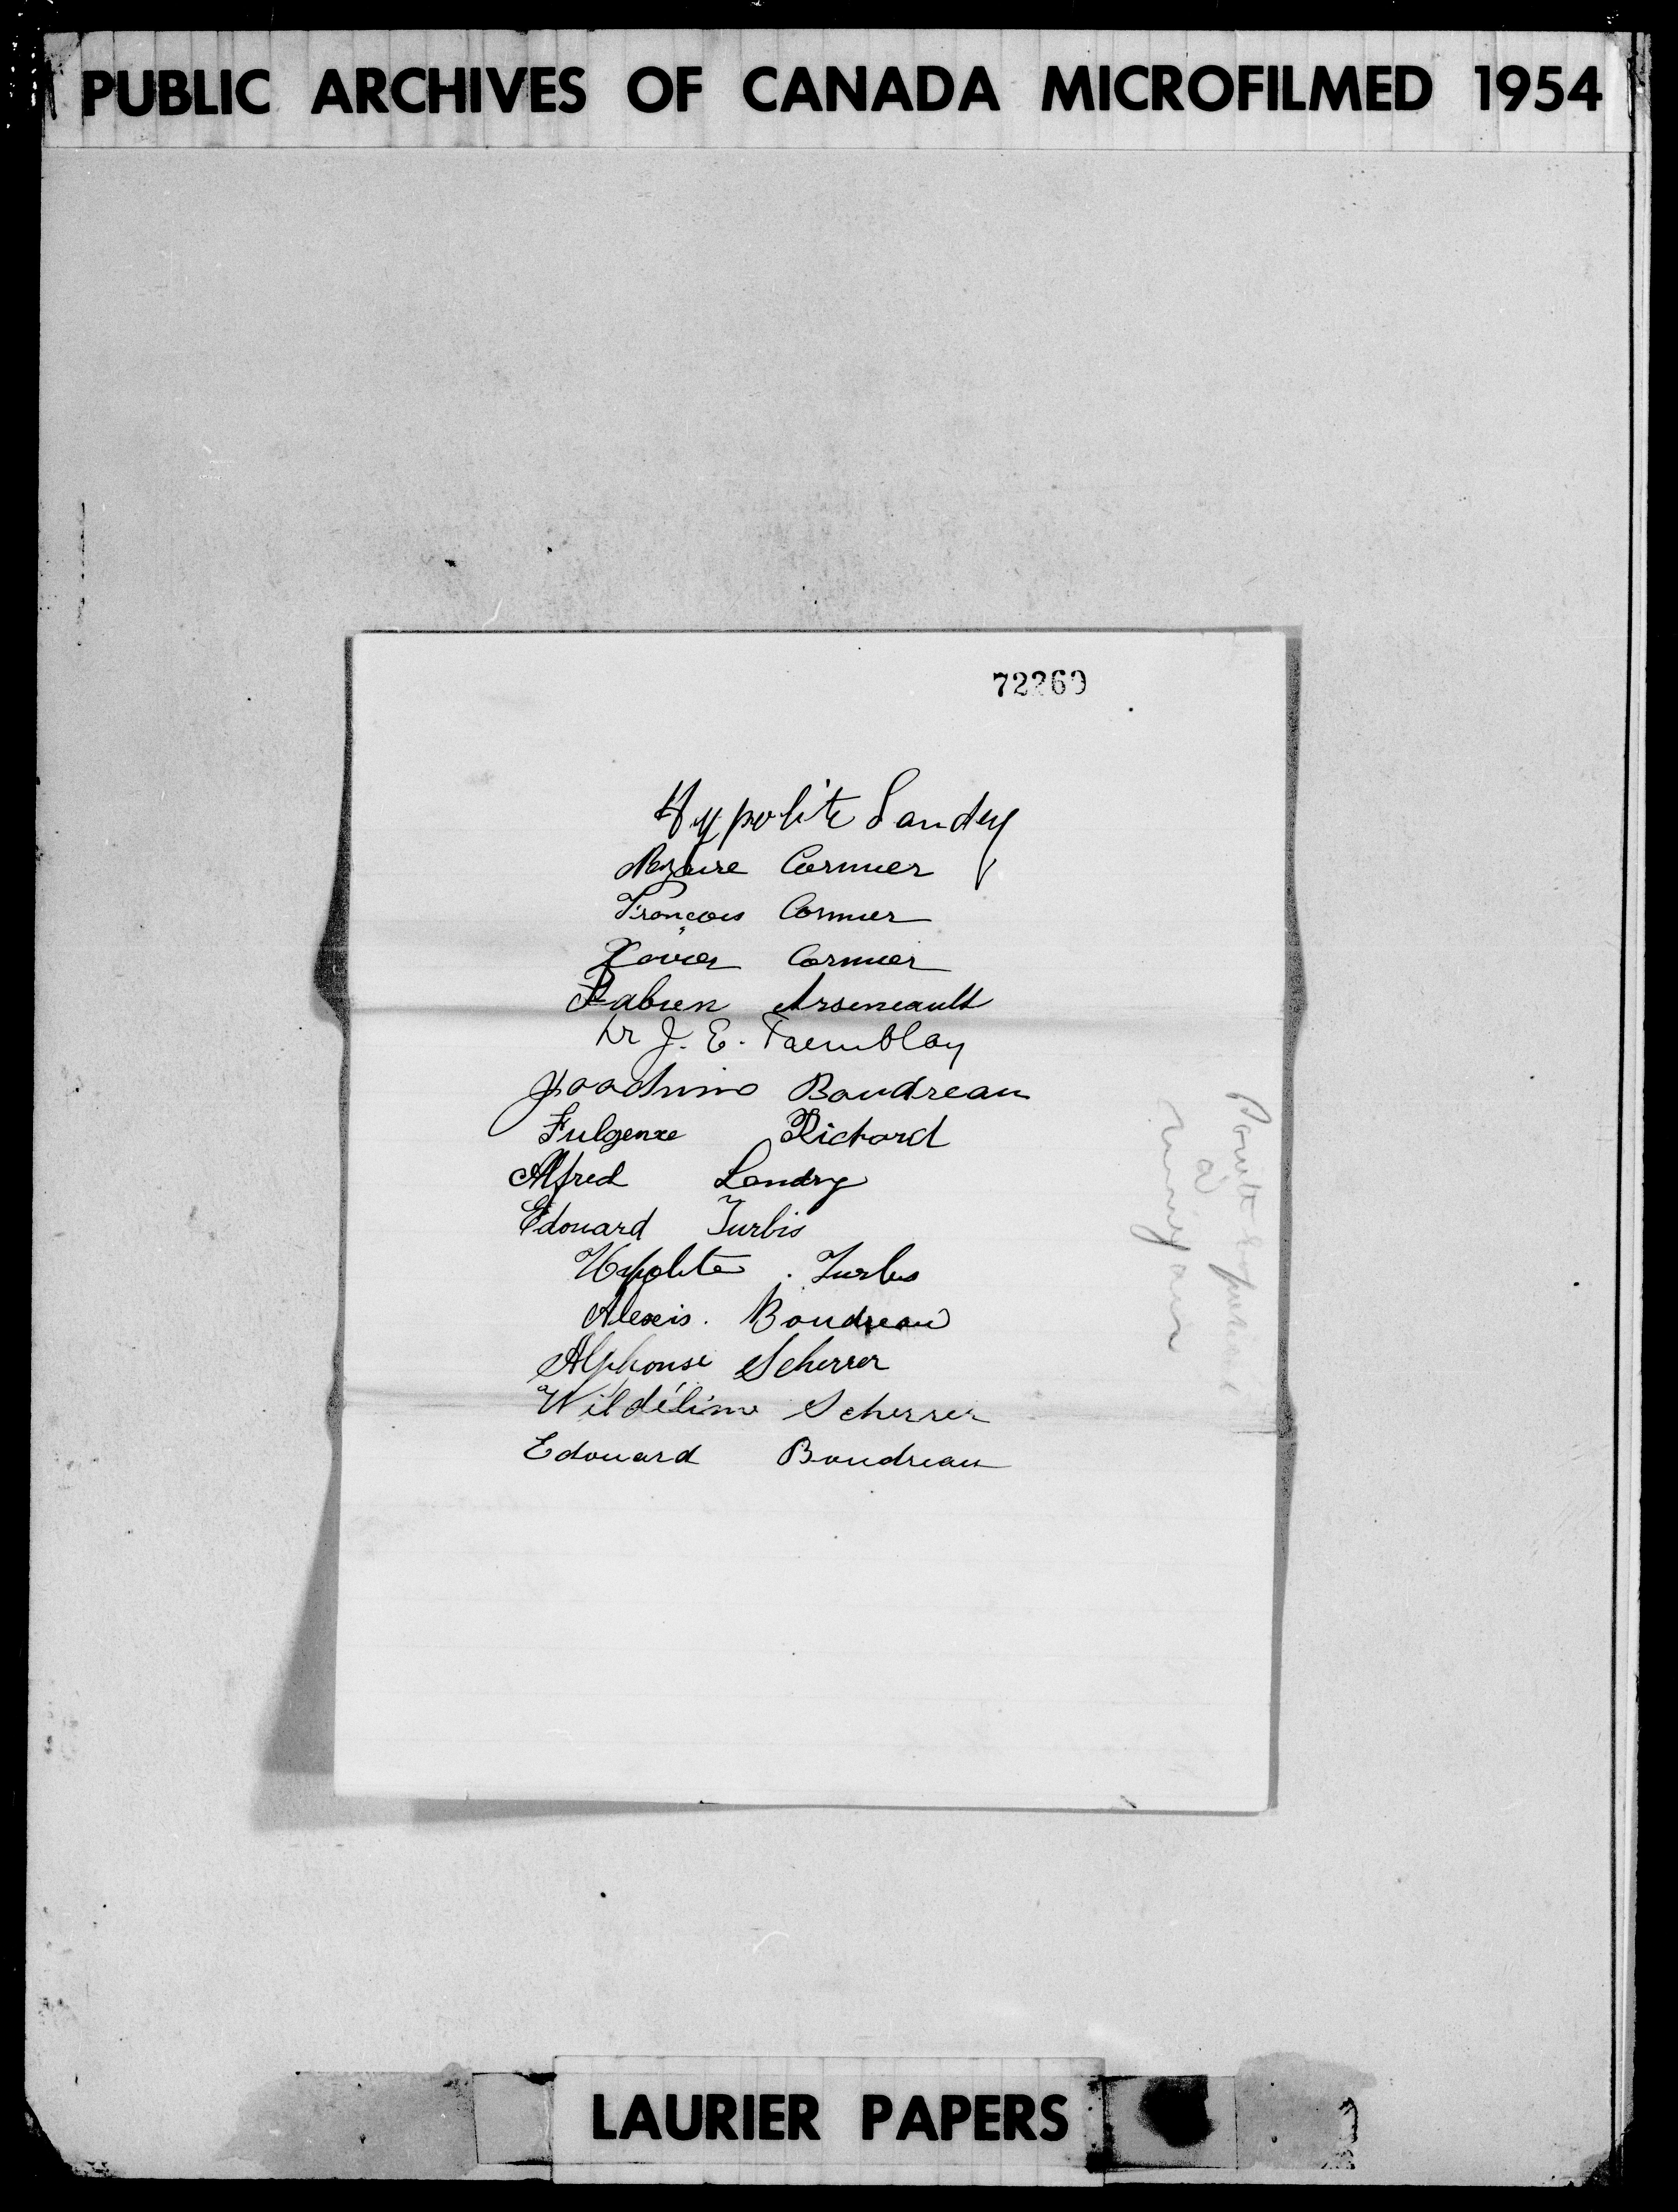 PUBLIC ARCHIVES OF CANADA MICROFILMED 1954
72269
Hypolite Landry
Nazaire Cormier
François Cormier
Xavier Cormier
Fabien Arseneault
Dr J. E. Tremblay
Joachim Boudreau
Fulgence Richard
Alfred Landry
Edouard Turbis
Hypolite Turbis
Alexis. Boudreau
Alphonse Scherrer
Wildélime Scherrer
Edouard Boudreau
LAURIER PAPERS